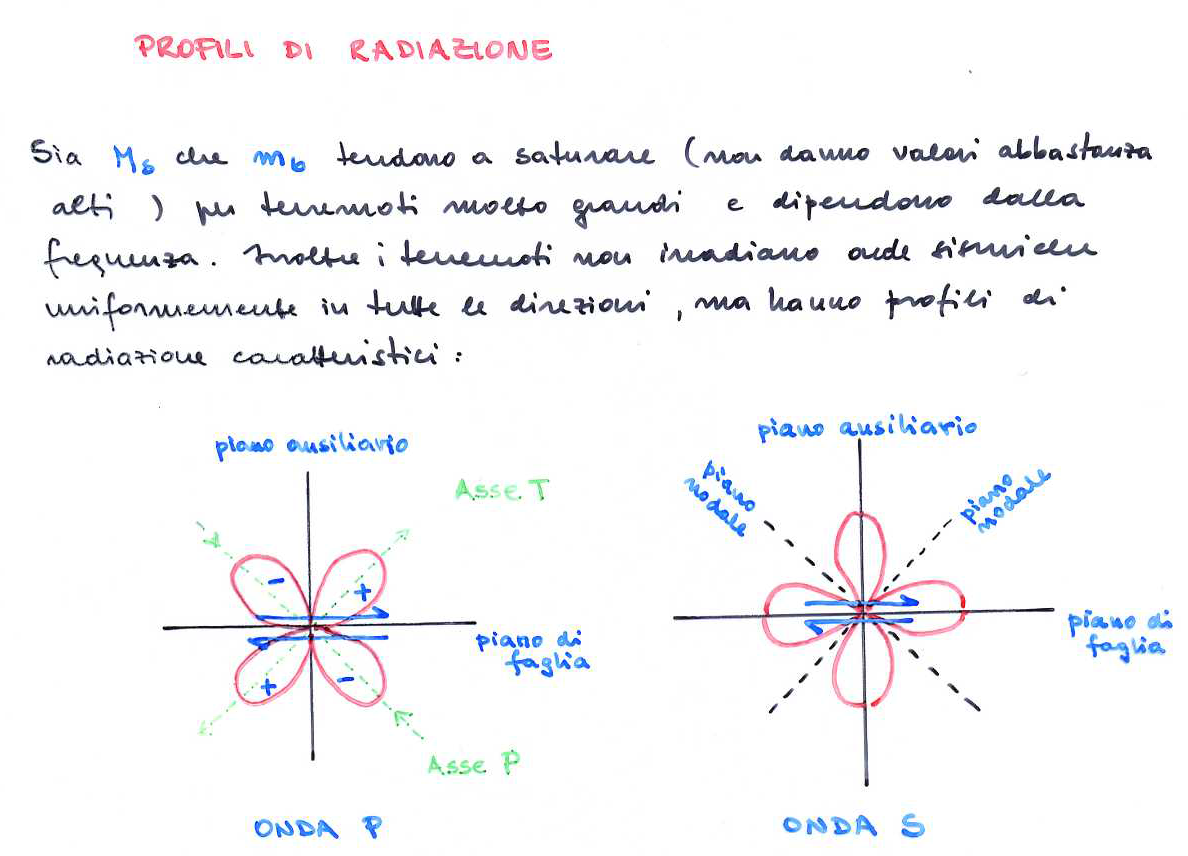 PROFILI DI RADIAZIONE
Sia Ms che mb tendono a saturare (non danno valori abbastanza
alti ) per terremoti molto grandi e dipendono dalla
frequenza. Inoltre i terremoti non irradiano onde sismiche
uniformemente in tutte le direzioni, ma hanno profili di
radiazione caratteristici :
piano ausiliario
Asse T
-
+
+
-
piano di
faglia
Asse P
ONDA P
piano ausiliario
piano
nodale
piano
nodale
piano di
faglia
ONDA S